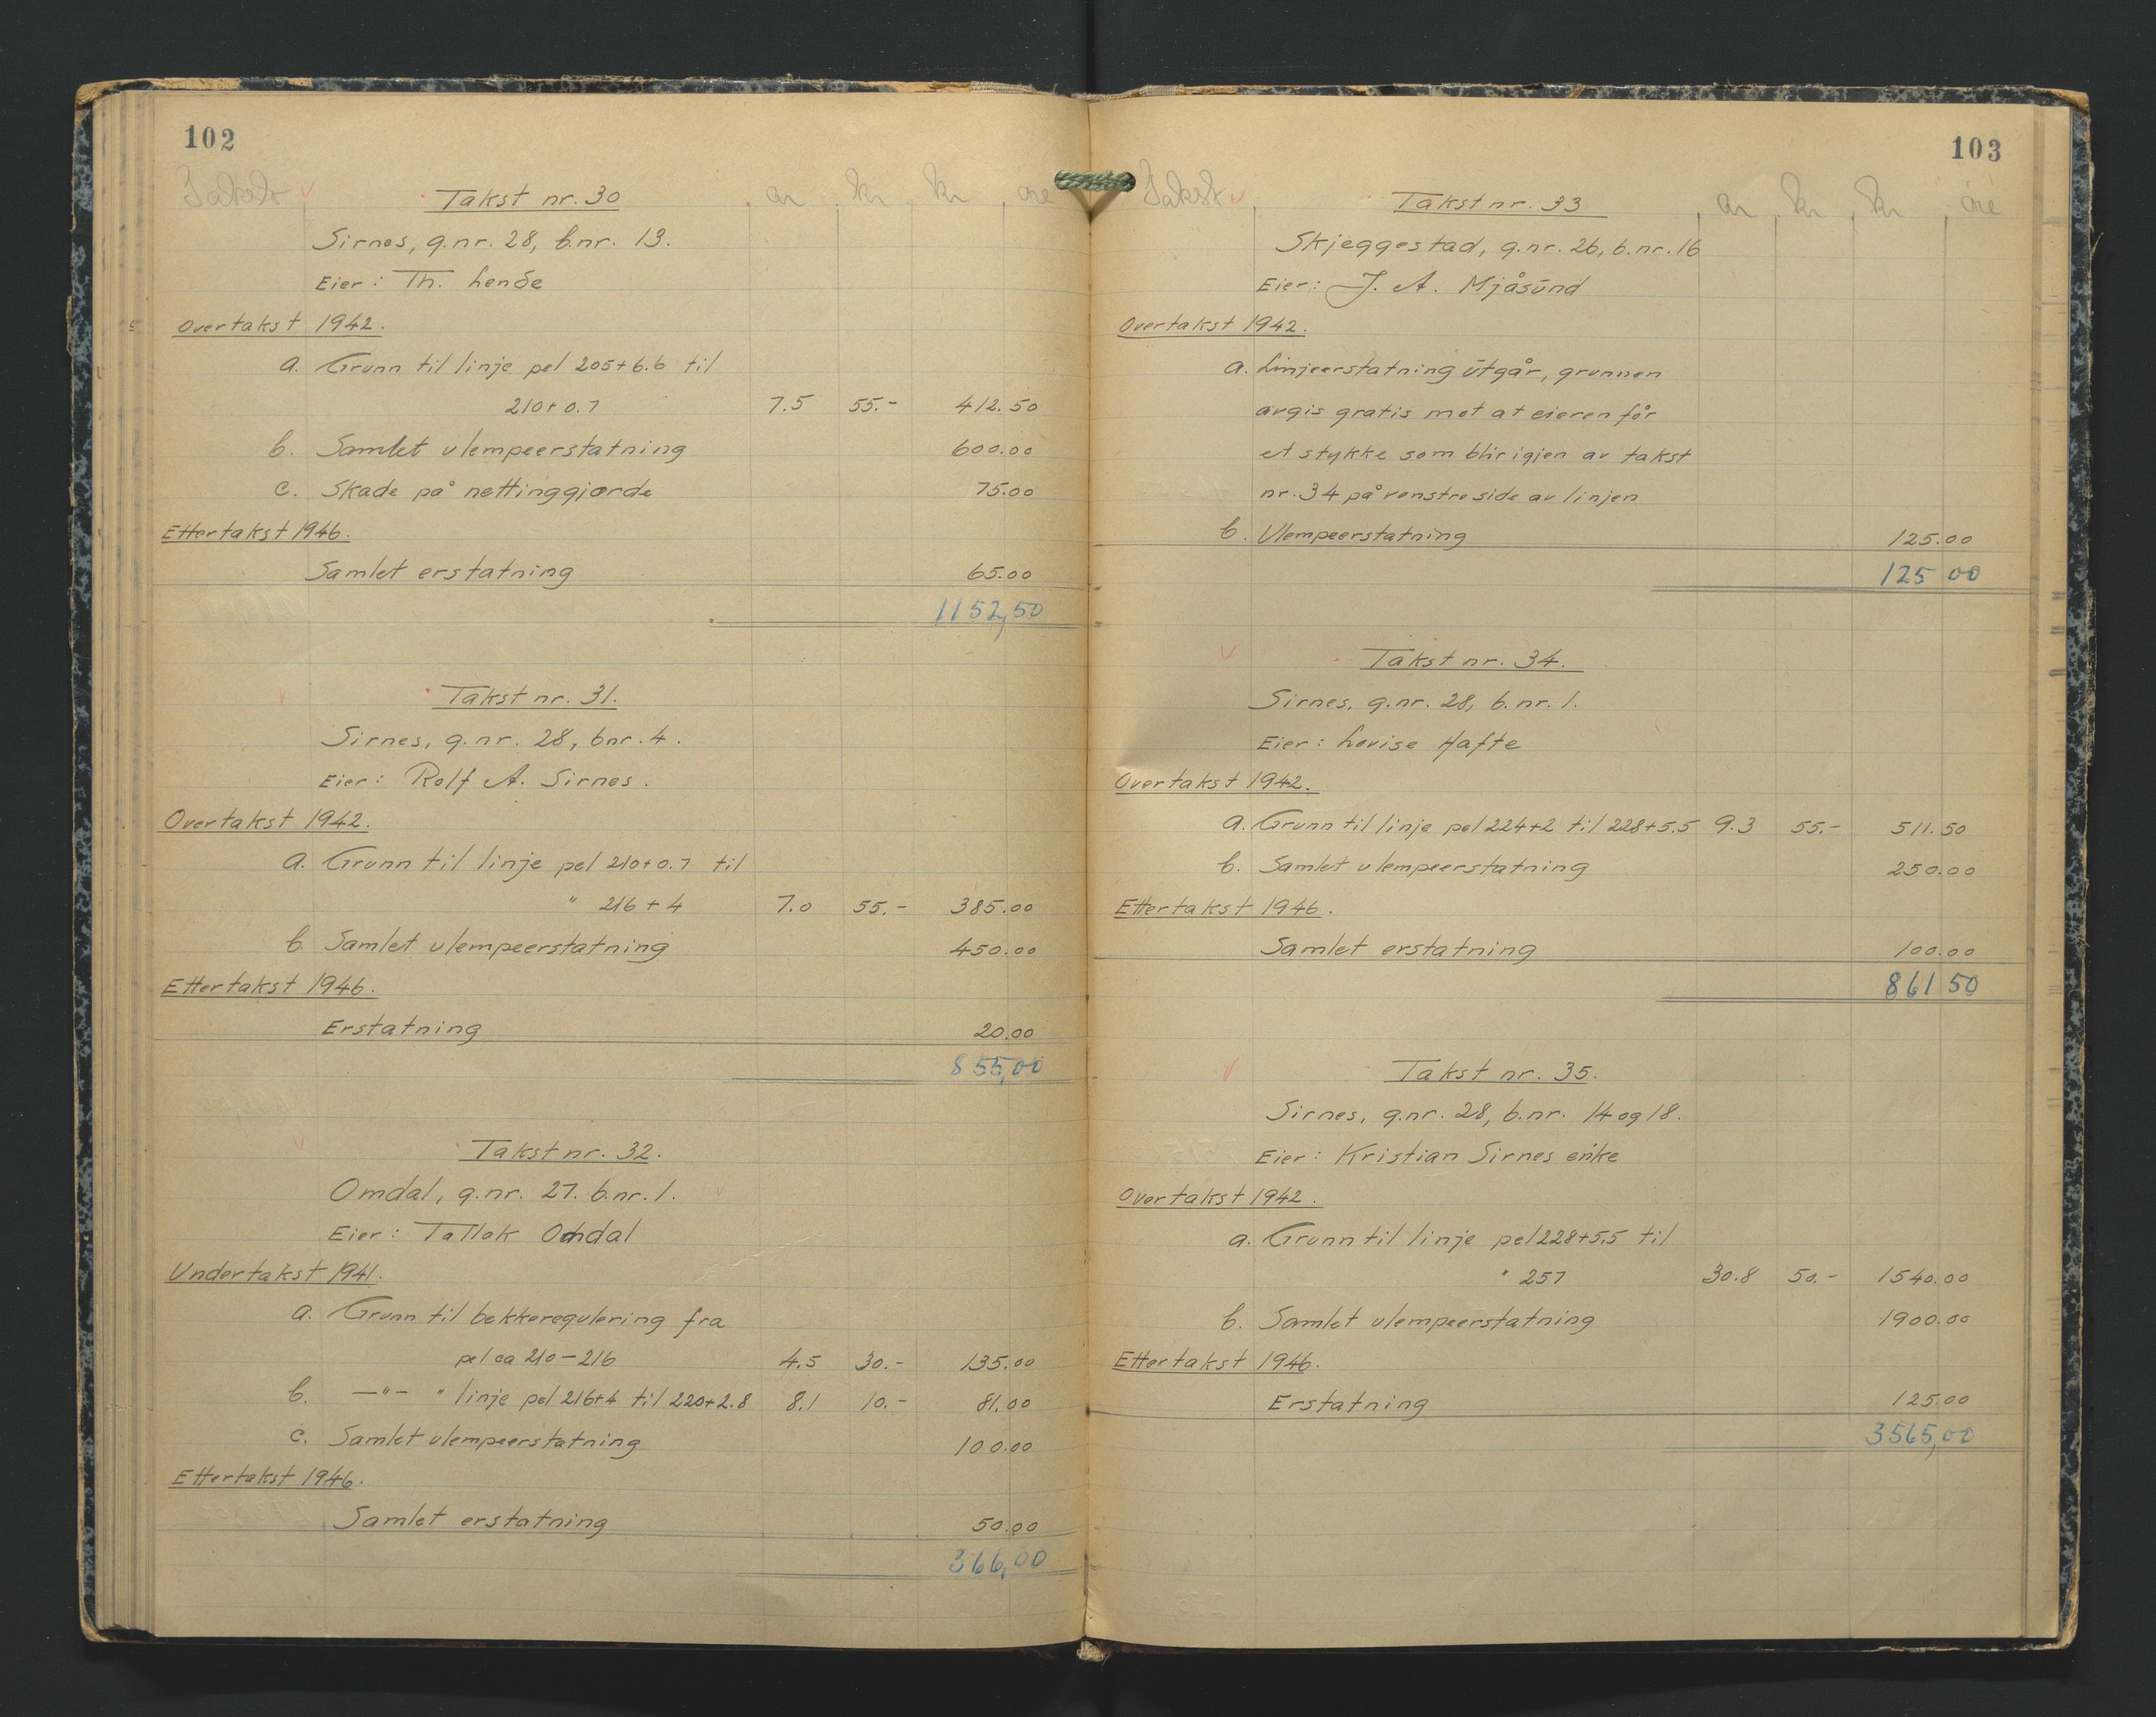 102
Takst nr. 30 ar kr kr øre
Sirnes, g.nr. 28, b.nr. 13.
Eier: Th. Lende
Overtakst 1942.
a. Grunn til linje pel 205+6.6 til
210+0.7 7.5 55.- 412.50
b. Samlet ulempeerstatning 600.00
c. Skade på nettinggjærde 75.00
Ettertakst 1946.
Samlet erstatning 65.00
1152,50
Takst nr. 31.
Sirnes, g.nr. 28, bnr. 4.
Eier: Rolf A. Sirnes.
Overtakst 1942.
a. Grunn til linje pel 210+0.7 til
" 216+4 7.0 55.- 385.00
b. Samlet ulempeerstatning 450.00
Ettertakst 1946.
Erstatning 20.00
855,00
Takst nr. 32.
Omdal, g.nr. 27. b.nr. 1.
Eier: Tallak Omdal
Undertakst 1941.
a. Grunn til bekkeregulering fra
pel ca 210-216 4.5 30.- 135.00
b. -"- " linje pel 216+4 til 220+2.8 8.1 10.- 81.00
c. Samlet ulempeerstatning 100.00
Ettertakst 1946.
Samlet erstatning 50.00
366,00
103
Takst Takst nr. 33 ar kr kr øre
Skjeggestad, g.nr. 26, b.nr. 16
Eier: J. A. Mjåsund
Overtakst 1942.
a. Linjeerstatning utgår, grunnen
avgis gratis mot at eieren får
et stykke som blir igjen av takst
nr. 34 på venstre side av linjen
b. Ulempeerstatning 125.00
125 00
Takst nr. 34.
Sirnes, g.nr. 28, b.nr. 1.
Eier: Lovise Hafte
Overtakst 1942.
a. Grunn til linje pel 224+2 til 228+5.5 9.3 55.- 511.50
b. Samlet ulempeerstatning 250.00
Ettertakst 1946.
Samlet erstatning 100.00
861 50
Takst nr. 35.
Sirnes, g.nr. 28, b.nr. 14 og 18.
Eier: Kristian Sirnes enke
Overtakst 1942.
a. Grunn til linje pel 228+5.5 til
" 257 30.8 50.- 1540.00
b. Samlet ulempeerstatning 1900.00
Ettertakst 1946.
Erstatning 125.00
3565,00